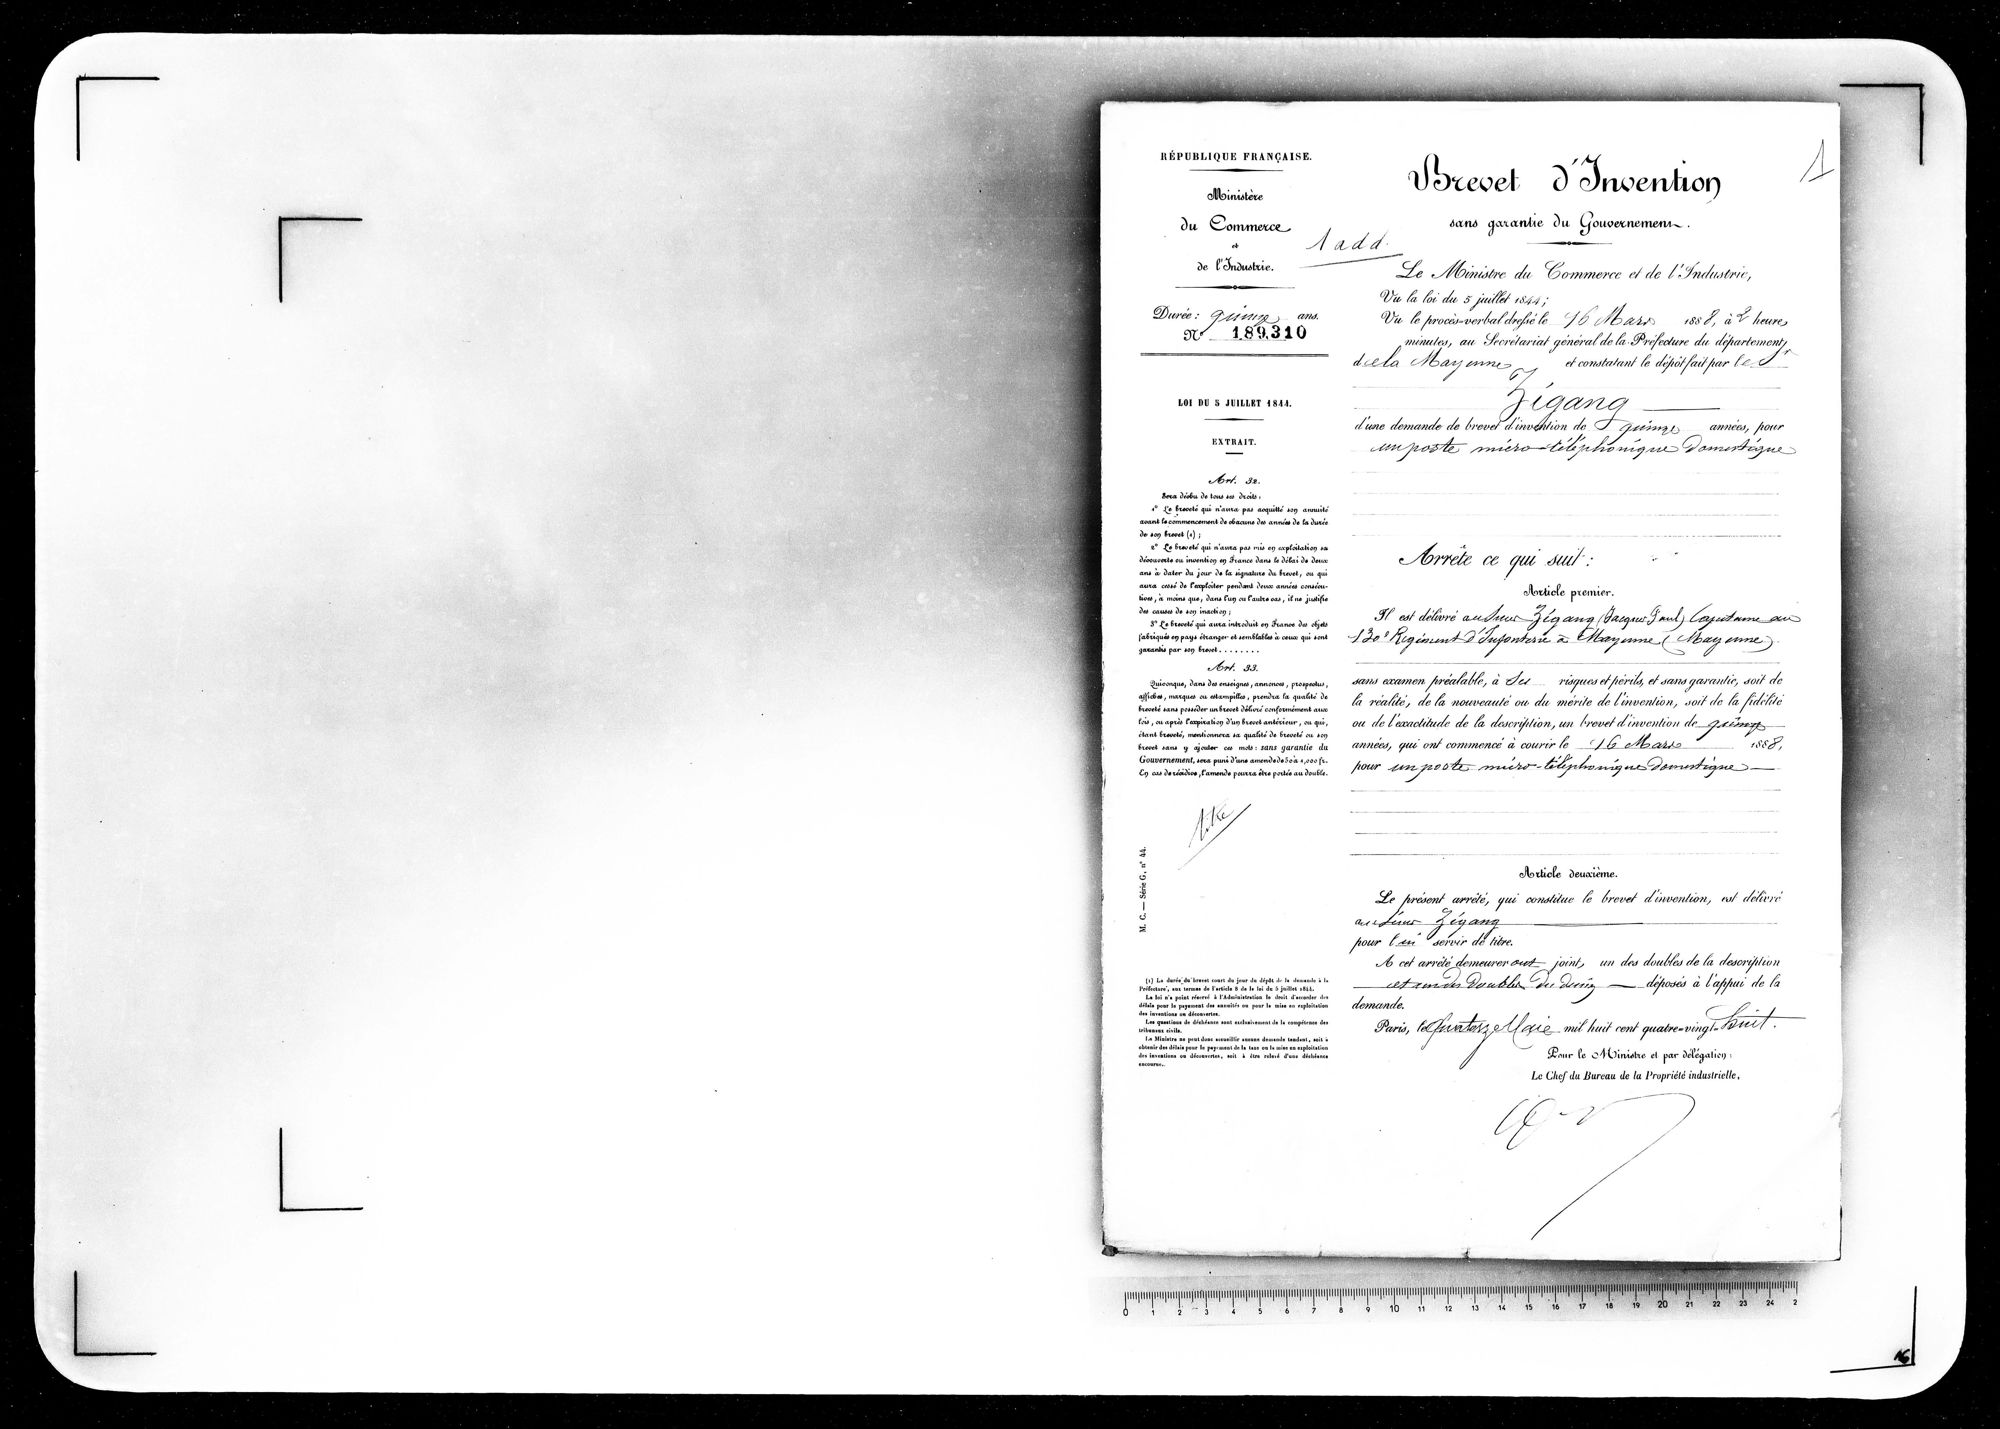 RÉPUBLIQUE FRANÇAISE.
Ministère
du Commerce
et
de l'Industrie.
Durée : quinze ans.
N° 189,310
LOI DU 5 JUILLET 1844.
EXTRAIT.
Art. 32.
Sera déchu de tous ses droits :
1° Le breveté qui n'aura pas acquitté son annuité
avant le commencement de chacune des années de la durée
de son brevet (1) ;
2° Le breveté qui n'aura pas mis en exploitation sa
découverte ou invention en France dans le délai de deux
ans à dater du jour de la signature du brevet, ou qui
aura cessé de l'exploiter pendant deux années consécu-
tives, à moins que, dans l'un ou l'autre cas, il ne justifie
des causes de son inaction ;
3° Le breveté qui aura introduit en France des objets
fabriqués en pays étranger et semblables à ceux qui sont
garantis par son brevet........
Art. 33.
Quiconque, dans des enseignes, annonces, prospectus,
affiches, marques ou estampilles, prendra la qualité de
breveté sans posséder un brevet délivré conformément aux
lois, ou après l'expiration d'un brevet antérieur, ou qui,
étant breveté, mentionnera sa qualité de breveté ou son
brevet sans y ajouter ces mots : sans garantie du
Gouvernement, sera puni d'une amende de 50 à 1,000 fr.
En cas de récidive, l'amende pourra être portée au double.
M. C. — Série G, n° 44.
(1) La durée du brevet court du jour du dépôt de la demande à la
Préfecture, aux termes de l'article 8 de la loi du 5 juillet 1844.
La loi n'a point réservé à l'Administration le droit d'accorder des
délais pour le payement des annuités ou pour la mise en exploitation
des inventions ou découvertes.
Les questions de déchéance sont exclusivement de la compétence des
tribunaux civils.
Le Ministre ne peut donc accueillir aucune demande tendant, soit à
obtenir des délais pour le payement de la taxe ou la mise en exploitation
des inventions ou découvertes, soit à être relevé d'une déchéance
encourue.
1 add.
1
Brevet d'Invention
sans garantie du Gouvernement.
Le Ministre du Commerce et de l'Industrie,
Vu la loi du 5 juillet 1844 ;
Vu le procès-verbal dressé le 16 Mars 1888, à 2 heures
minutes, au Secrétariat général de la Préfecture du département
de la Mayenne et constatant le dépôt fait par le Sr
Zigang
d'une demande de brevet d'invention de quinze années, pour
un poste micro-téléphonique domestique
Arrête ce qui suit :
Article premier.
Il est délivré au Sieur Zigang (Jacques Paul) Capitaine au
130e Régiment d'Infanterie à Mayenne (Mayenne)
sans examen préalable, à ses risques et périls, et sans garantie, soit de
la réalité, de la nouveauté ou du mérite de l'invention, soit de la fidélité
ou de l'exactitude de la description, un brevet d'invention de quinze
années, qui ont commencé à courir le 16 Mars 1888,
pour un poste micro-téléphonique domestique
Article deuxième.
Le présent arrêté, qui constitue le brevet d'invention, est délivré
au Sieur Zigang
pour lui servir de titre.
A cet arrêté demeureront joints un des doubles de la description
et un des doubles du dessin déposés à l'appui de la
demande.
Paris, le quatorze Mai mil huit cent quatre-vingt-huit.
Pour le Ministre et par délégation :
Le Chef du Bureau de la Propriété industrielle,
0 1 2 3 4 5 6 7 8 9 10 11 12 13 14 15 16 17 18 19 20 21 22 23 24 2
16